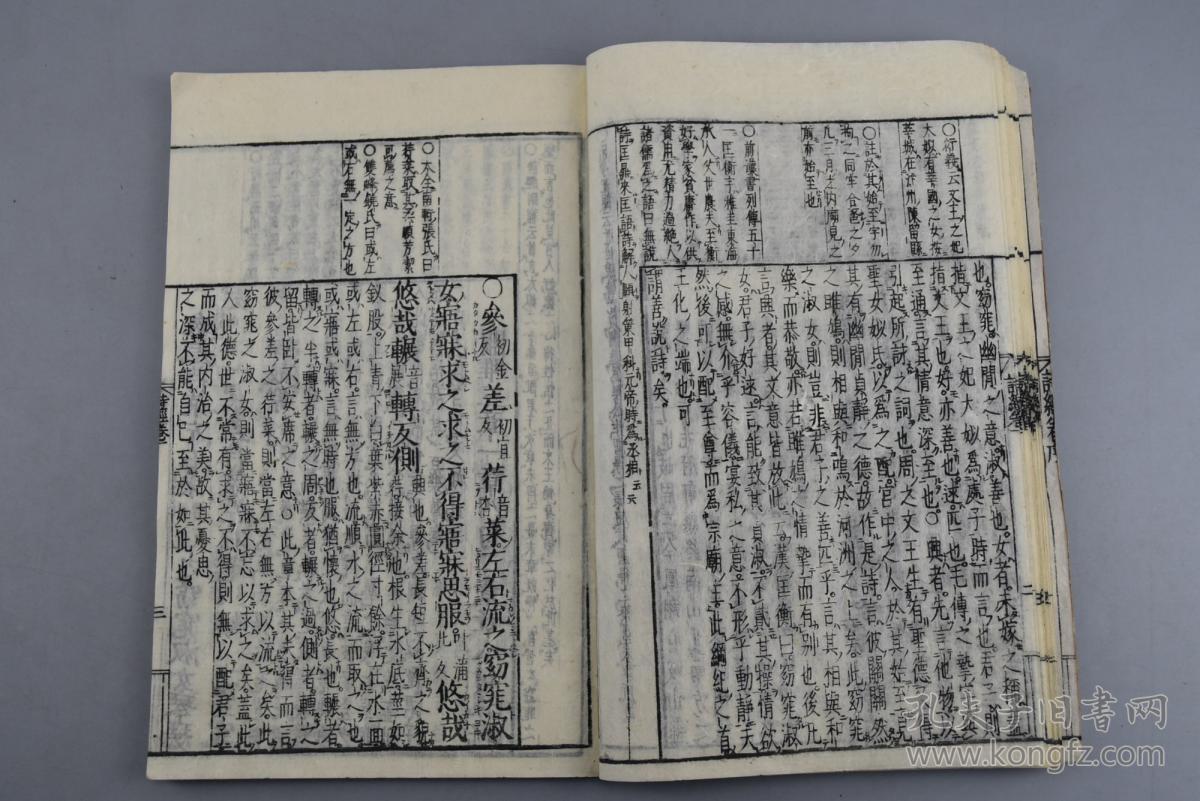 ○衍義云文王之妃
大姒有莘國之女按
莘城在汴州陳留縣
○註於其始至字勿
前漢書列傳五十
一匡衡字稚圭東海
承人父世農夫至衡
好學家貧庸作以供
資用尤精力過絶人
諸儒爲之語曰無說
詩匡鼎來匡語詩解人頤射策甲科元帝時爲丞相
也窈窕幽閒之意淑善也女者未嫁之稱蓋
指文王之妃大姒爲處子時而言也君子則
指文王也好亦善也逑匹也毛傳之摯字
至通言其情意深至也○興者先言他物以
引起所詠之詞也周之文王生有聖德又得
聖女姒氏以爲之配宮中之人於其始至見
其有幽閒貞靜之德故作是詩言彼關關然
之雎鳩則相與和鳴於河洲之上矣此窈窕
之淑女則豈非君子之善匹乎言其相與和
樂而恭敬亦若雎鳩之情摯而有別也後凡
言興者其文意皆放此云漢匡衡曰窈窕淑
女君子好逑言能致其貞淑不貳其操情欲
之感無介乎容儀宴私之意不形乎動靜夫
然後可以配至尊而爲宗廟主此綱紀之首
王化之端也可
謂善說詩矣
○本全南軒張氏曰
○雙峰饒氏曰或左
或右無一定之方也
○參初金反差初宜反荇音菜左右流之窈窕淑
女寤寐求之求之不得寤寐思服悠哉
悠哉輾音展轉反側
興也參差長短不齊之貌
荇接余也根生水底莖如
釵股上青下白葉紫赤圓徑寸餘浮在水面
或左或右言無方也流順水之流而取之也
或寤或寐言無時也服猶懷也悠長也輾者
轉之半轉者輾之周反者輾之過側者轉之
留皆臥不安席之意○此章本其未得而言
彼參差之荇菜則當左右無方以流之矣此
窈窕之淑女則當寤寐不忘以求之矣蓋此
人此德世不常有求之不得則無以配君子
而成其內治之美故其憂思
之深不能自已至於如此也
三
孔夫子旧书网
www.kongfz.com